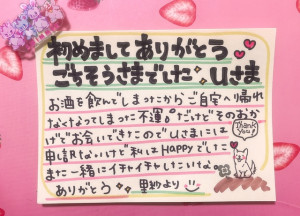 初めましてありがとう
ごちそうさまでした Uさま
お酒を飲んでしまったからご自宅へ帰れ
なくなってしまった不運。だけどそのおか
げでお会いできたのでUさまには
申し訳ないけど私はHAPPYでした
また一緒にイチャイチャしたいな。
ありがとう 里紗より
Thank
you!